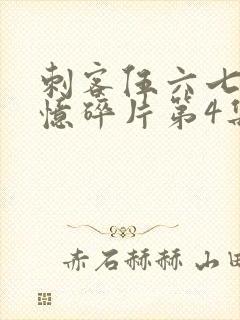 刺客伍六七
憶碎片第4集
赤石赫赫 山田